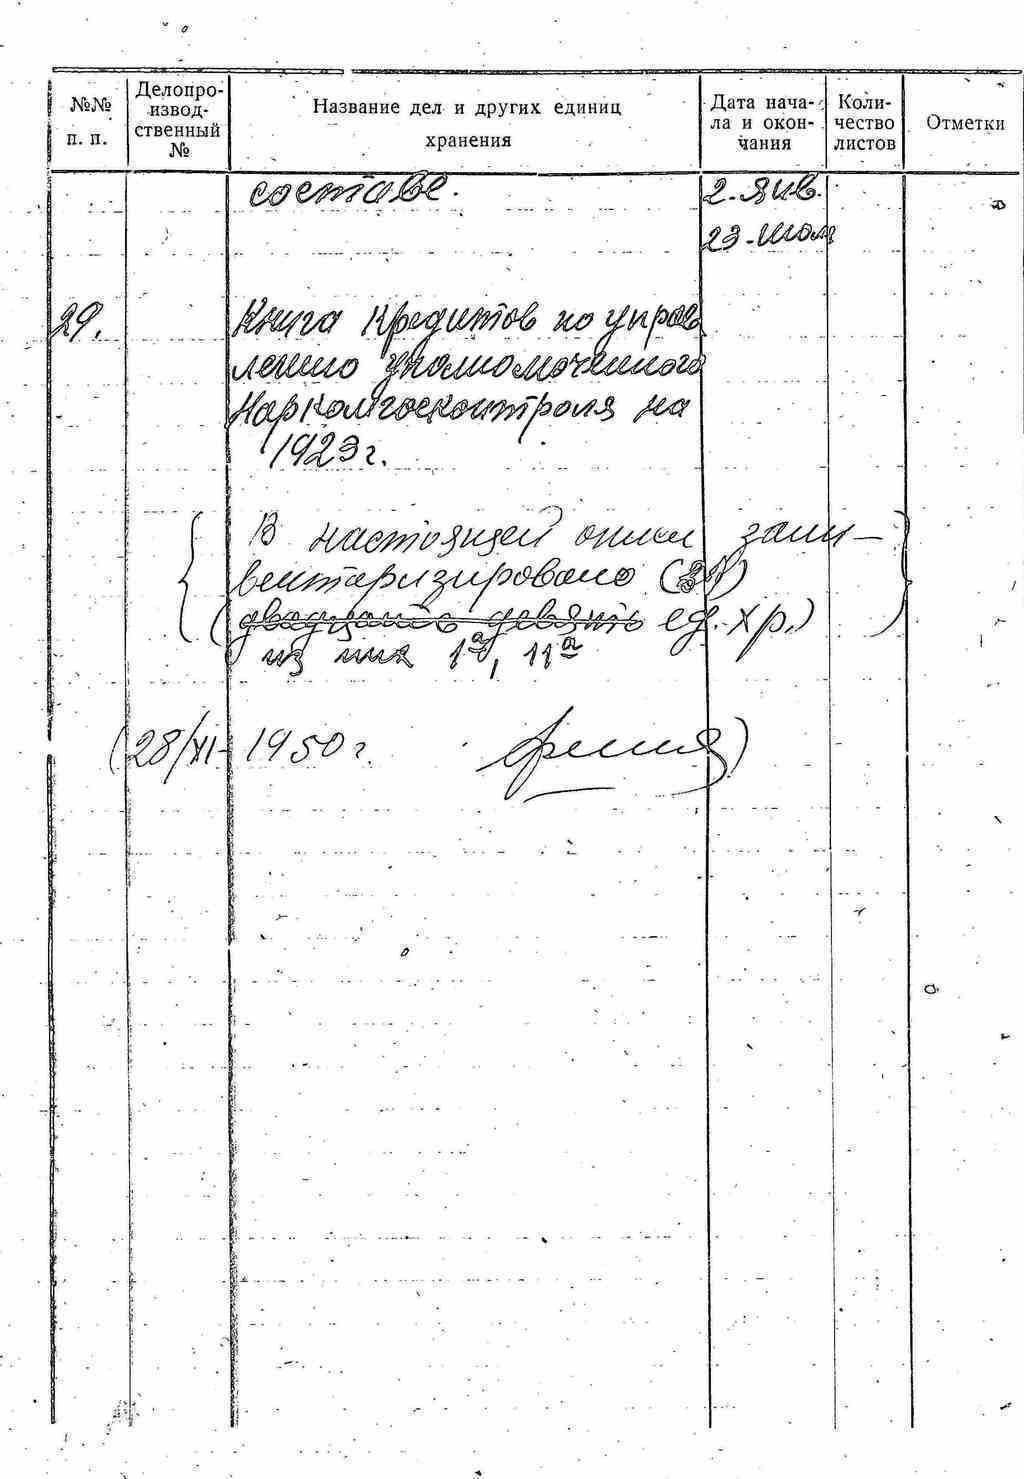 №№ п. п.
Делопроизводственный №
Название дел и других единиц хранения
Дата начала и окончания
Количество листов
Отметки
составе.
2. Янв.
23. июля
29.
Книга кредитов по управ
лению уполномоченного
Наркомгосконтроля на
1923 г.
В настоящей описи заин-
вентаризировано
(двадцать девять ед. хр.)
из них 1ª, 11ª
(28/XI- 1950 г.